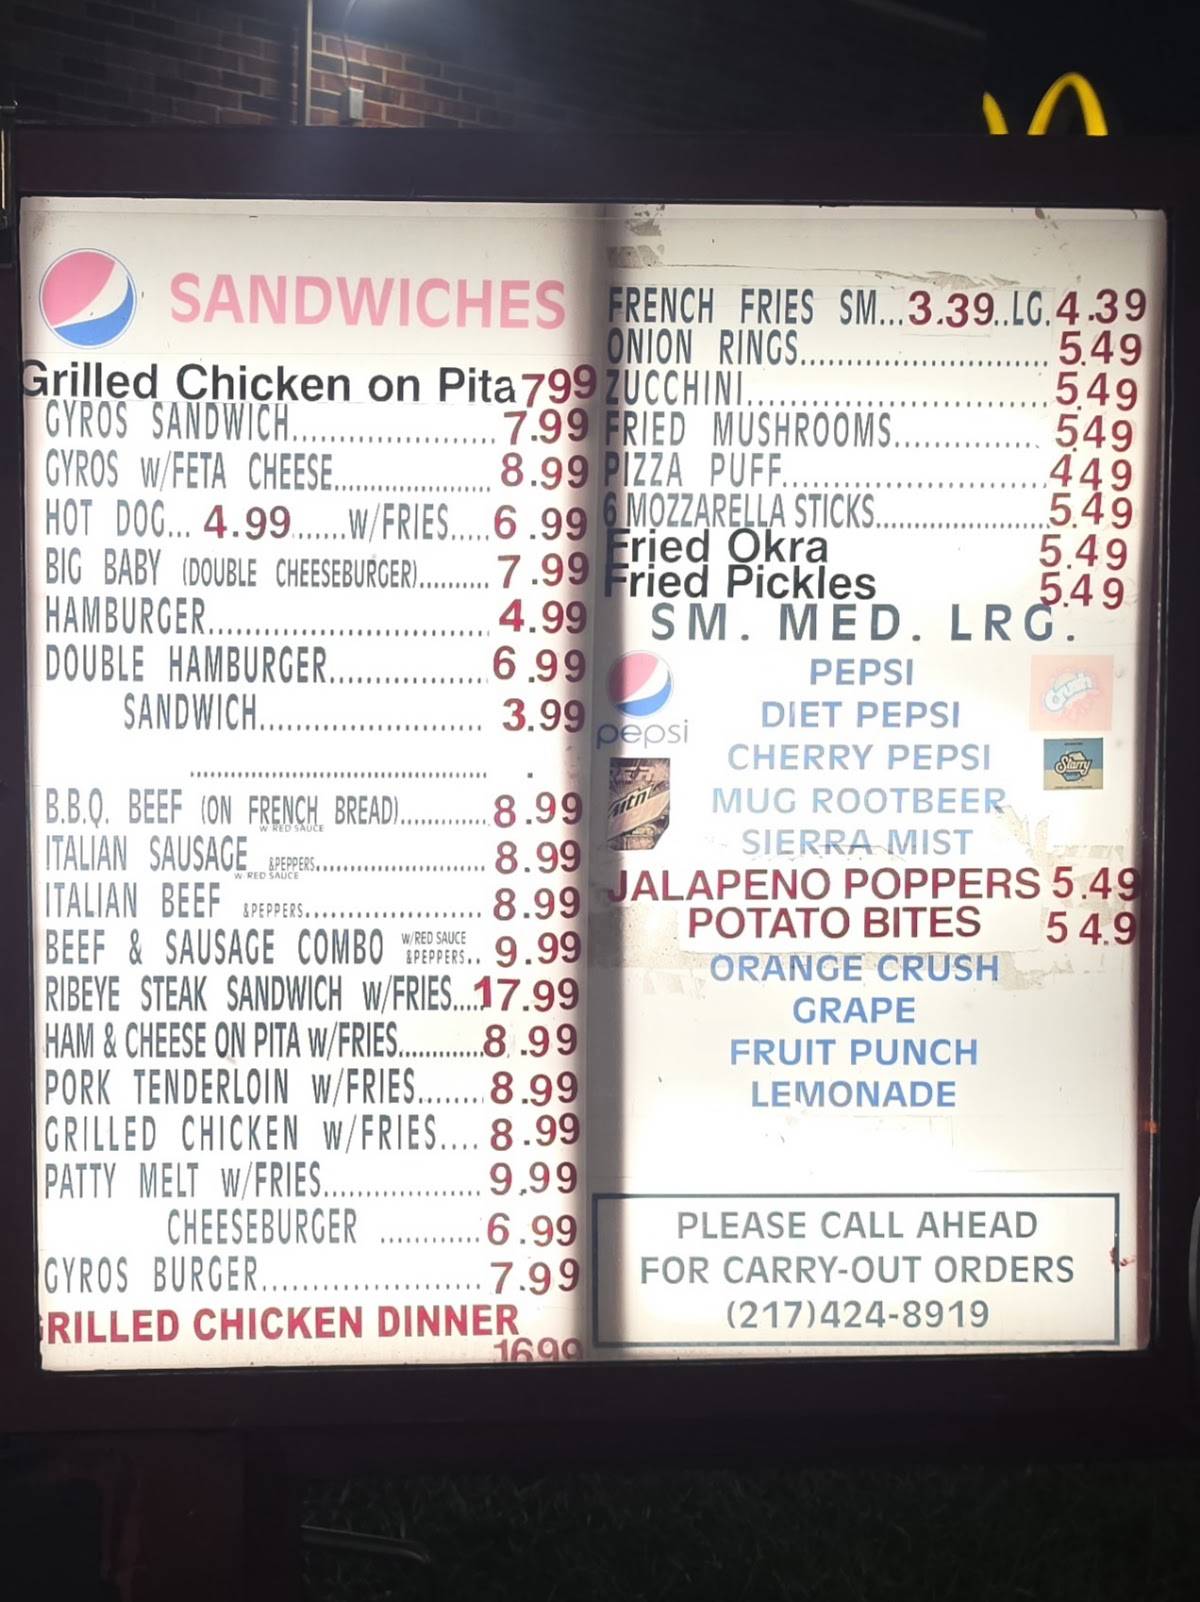 SANDWICHES
Grilled Chicken on Pita 799
GYROS SANDWICH..................... 7.99
GYROS W/FETA CHEESE..................... 8.99
HOT DOG... 4.99.......W/FRIES..... 6.99
BIG BABY (DOUBLE CHEESEBURGER).......... 7.99
HAMBURGER............................. 4.99
DOUBLE HAMBURGER................. 6.99
SANDWICH....................... 3.99
....................................... .
B.B.Q. BEEF (ON FRENCH BREAD)............. 8.99
W RED SAUCE
ITALIAN SAUSAGE &PEPPERS...................... 8.99
W RED SAUCE
ITALIAN BEEF &PEPPERS...................... 8.99
BEEF & SAUSAGE COMBO W/RED SAUCE &PEPPERS.. 9.99
RIBEYE STEAK SANDWICH W/FRIES.... 17.99
HAM & CHEESE ON PITA W/FRIES............ 8.99
PORK TENDERLOIN W/FRIES........ 8.99
GRILLED CHICKEN W/FRIES.... 8.99
PATTY MELT W/FRIES................... 9.99
CHEESEBURGER ............ 6.99
GYROS BURGER....................... 7.99
GRILLED CHICKEN DINNER
1699
FRENCH FRIES SM... 3.39..LG. 4.39
ONION RINGS.......................... 5.49
ZUCCHINI............................... 5.49
FRIED MUSHROOMS............... 549
PIZZA PUFF........................... 449
6 MOZZARELLA STICKS......................... 5.49
Fried Okra 5.49
Fried Pickles 5.49
SM. MED. LRG.
pepsi
Crush
Starry
PEPSI
DIET PEPSI
CHERRY PEPSI
MUG ROOTBEER
SIERRA MIST
JALAPENO POPPERS 5.49
POTATO BITES 5 4.9
ORANGE CRUSH
GRAPE
FRUIT PUNCH
LEMONADE
PLEASE CALL AHEAD
FOR CARRY-OUT ORDERS
(217)424-8919